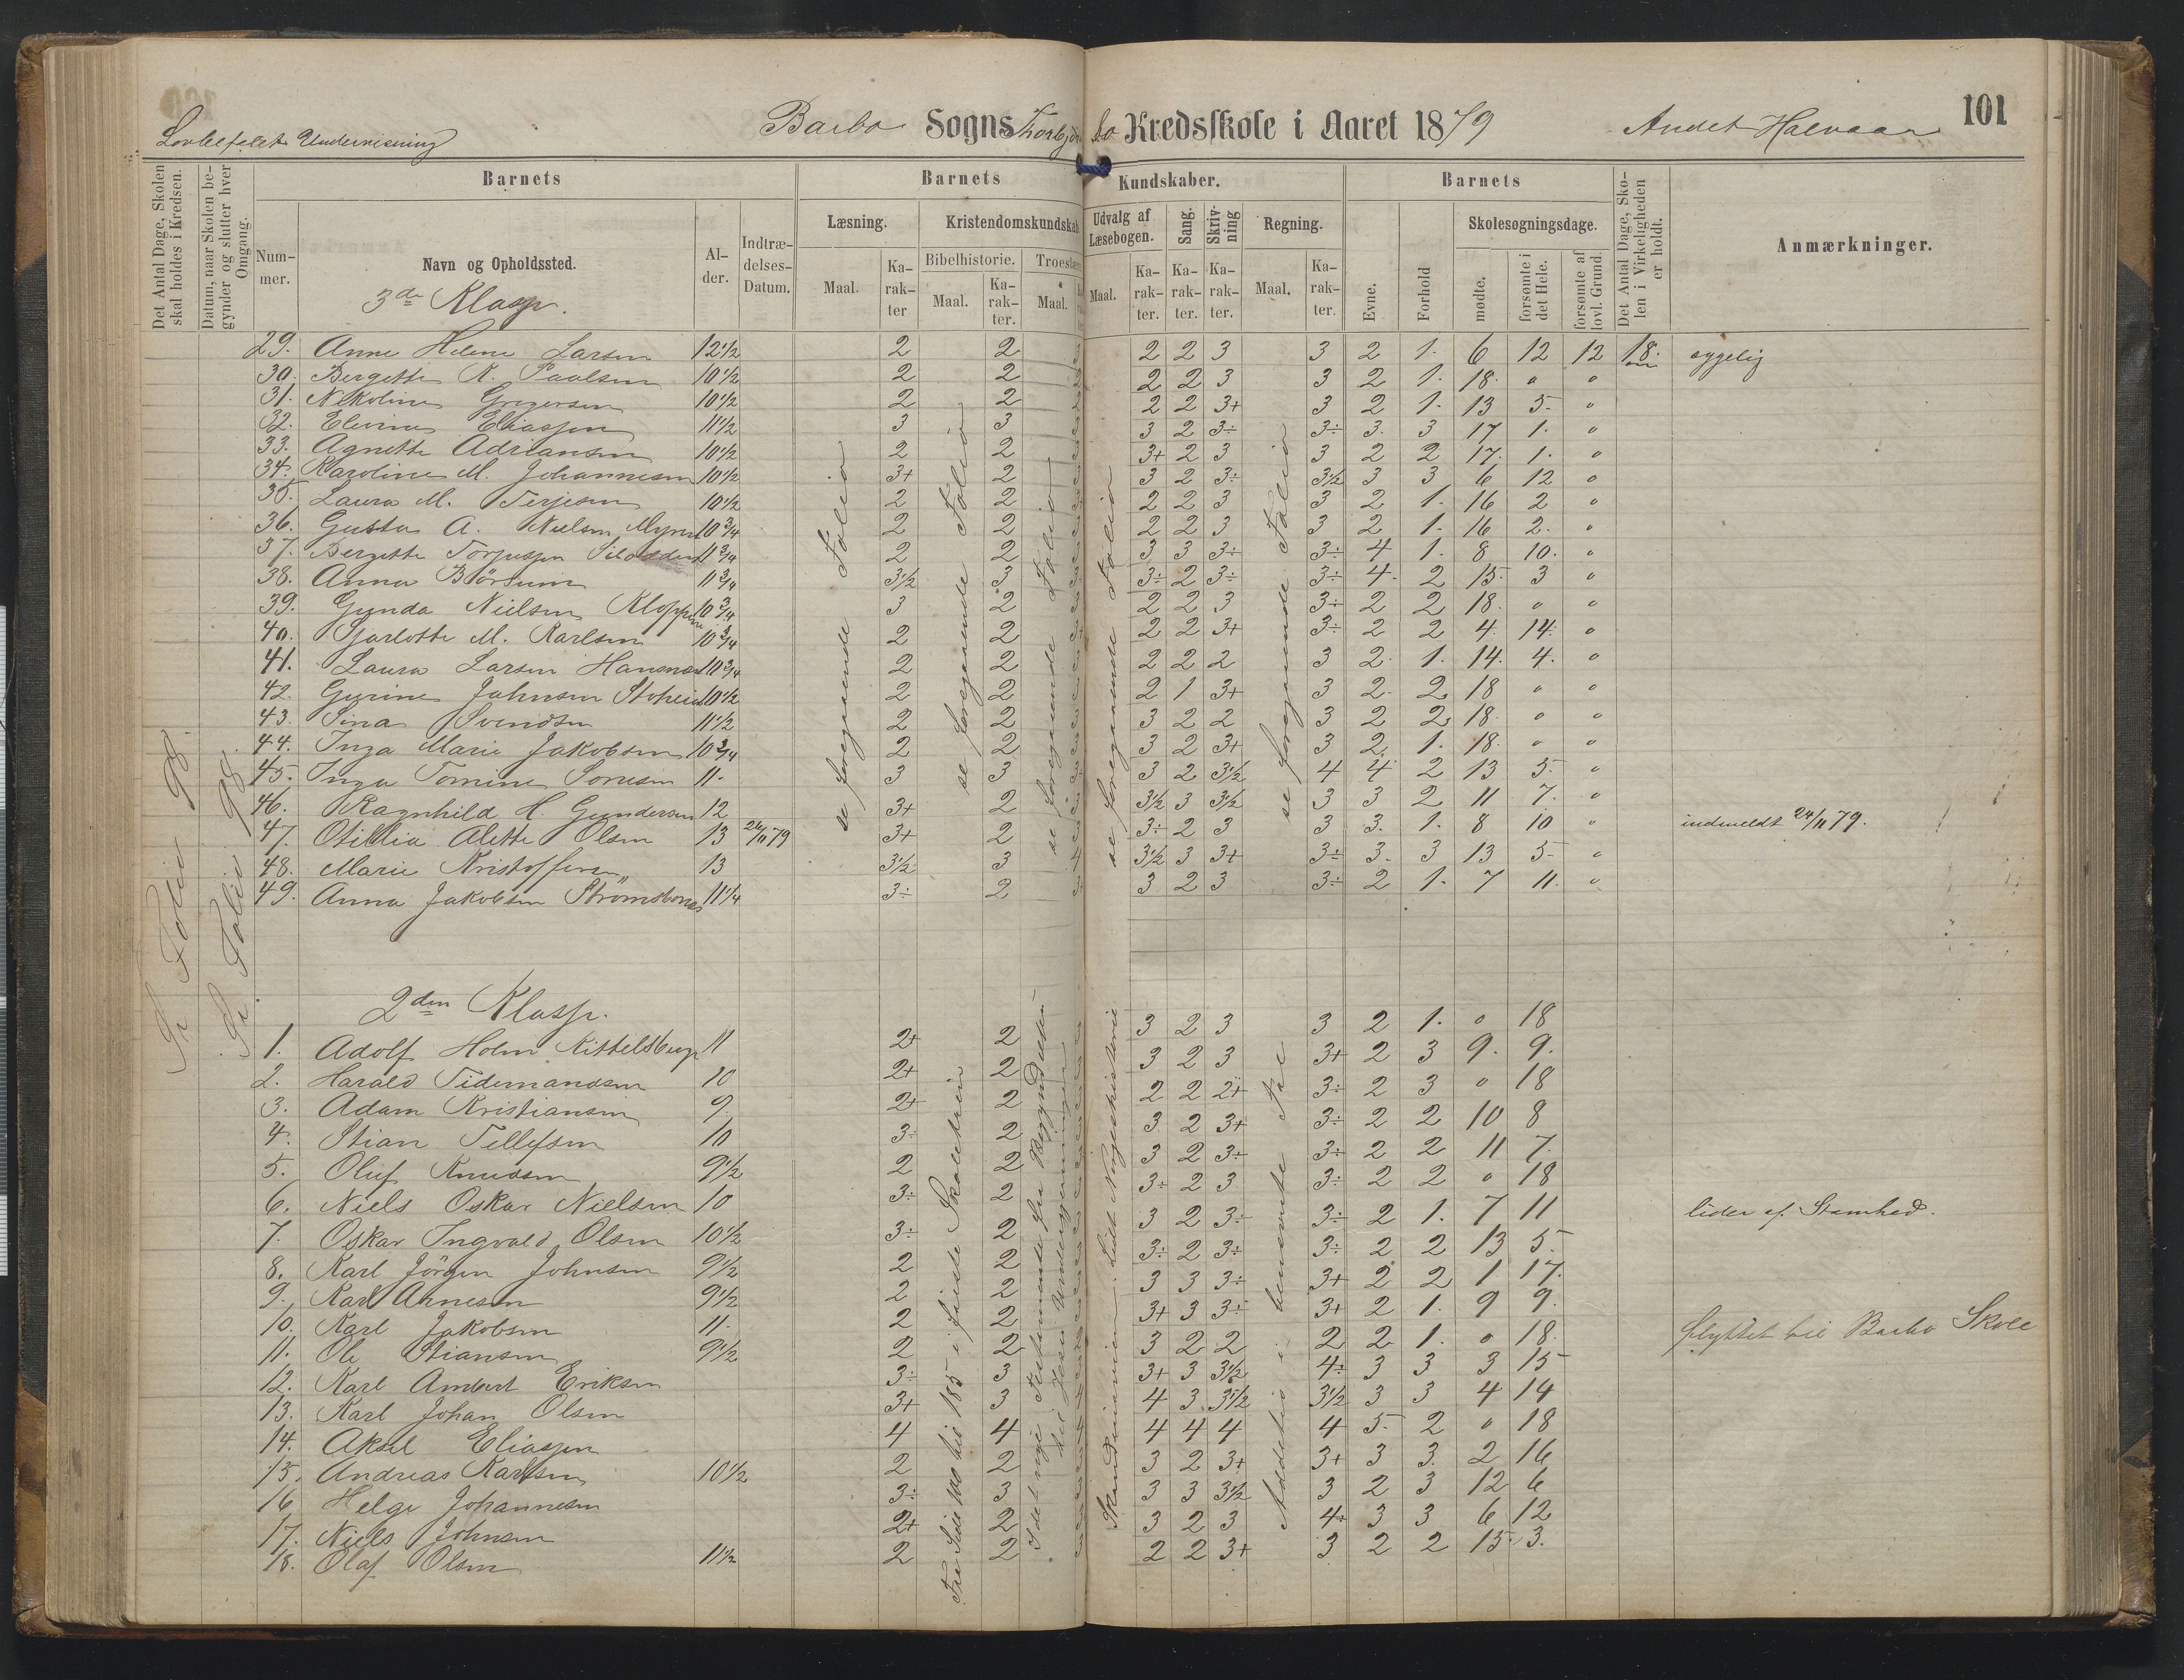 101
Lovbefalet Undervisning
Barbo Sogns Thorbjørnsbo Kredsskole i Aaret 1879 Andet Halvaar
Det Antal Dage, Skolen skal holdes i Kredsen.
Datum, naar Skolen begynder og slutter hver Omgang.
Barnets
Nummer.
Navn og Opholdssted.
Alder.
Indtrædelses-Datum.
Barnets Kundskaber.
Læsning.
Maal. Karakter
Kristendomskundskab
Bibelhistorie.
Maal. Karakter.
Troeslære
Maal.
Udvalg af Læsebogen.
Maal. Karakter.
Sang.
Karakter.
Skrivning
Karakter.
Regning.
Maal. Karakter.
Barnets
Evne.
Forhold
Skolesøgningsdage.
mødte.
forsømte i det Hele.
forsømte af lovl. Grund.
Det Antal Dage, Skolen i Virkeligheden er holdt.
Anmærkninger.
3de Klasse.
29. Anne Helene Larsen 12 1/2 2 2 2 2 3 3 2 1. 6 12 12 18. sygelig
30. Bergette K. Paulsen 10 1/2 2 2 2 2 3 3 2 1. 18. " "
31. Nikoline Gregersen 10 1/2 2 2 2 2 3+ 3 2 1. 13 5. "
32. Elevine Eliassen 11 1/2 3 3 3 2 3÷ 3÷ 3. 3 17 1. "
33. Agnette Adriansen 10 1/2 2 2 3+ 2 3 3 2 2 17. 1. "
34. Karoline M. Johannesen 10 1/2 3+ 2 3 2 3÷ 3 1/2 3 3 6 12 "
35. Laura M. Terjesen 10 1/2 2 2 2 2 3 3 2 1. 16 2 "
36. Gusta A. Nielsen Myren 10 3/4 2 2 2 2 3 3 2 1. 16 2. "
37. Bergette Torjussen 11 3/4 2 2 3 3 3÷ 3÷ 4 1. 8 10. "
38. Anna Börsum 11 3/4 3 1/2 3 3÷ 2 3÷ 3÷ 4. 2 15. 3 "
39. Gunda Nielsen Kloppene 10 3/4 3 2 2 2 3 3÷ 2 2 18. " "
40. Sjarlotte M. Karlsen 10 3/4 2 2 2 2 3+ 3÷ 2 2 4. 14. "
41. Laura Larsen 10 3/4 2 2 2 2 2 3 2. 1. 14. 4. "
42. Gurine Johnsen 10 1/2 2 2 2 1 3+ 3 2. 2 18 " "
43. Sina Svendsen 11 1/2 2 2 3 2 2 3 2 2 18. " "
44. Inga Marie Jakobsen 10 3/4 2 2 3 2 3+ 3 2. 1. 18. " "
45. Inga Tomine 11. 3 3 3 2 3 1/2 4 4 2 13 5. "
46. Ragnhild H. Gundersen 12 3+ 2 3 1/2 3 3 1/2 3 3 2 11 7. "
47. Otillia Alette Olsen 13 24/11 79 3+ 2 3÷ 2 3 3 3. 1. 8 10 " indmeldt 24/11 79.
48. Marie Kristoffersen 13 3 1/2 3 3 1/2 3 3+ 3÷ 3. 3 13 5. "
49. Anna Jakobsen Strömsbonæs 11 1/4 3÷ 2 3 2 3 3÷ 2 1. 7 11. "
Se Folio 98.
Se Folio 98.
se foregaaende Folio
se foregaaende Folio
se foregaaende Folio
se foregaaende Folio
se foregaaende Folio
2den Klasse.
1. Adolf Holm Kittelsbugt 11 2+ 2 3 2 3 3 2 1. 0 18
2. Harald Tidemandsen 10 2+ 2 3 2 3 3+ 2 3 9. 9.
3. Adam Kristiansen 9 2+ 2 2 2 2+ 3÷ 2 3 0 18
4. Stian Tellefsen 10 3÷ 2 3 2 3+ 3÷ 2 2 10 8
5. Oluf Knudsen 9 1/2 2 2 3 2 3÷ 3÷ 2 2 11 7.
6. Niels Oskar Nielsen 10 3÷ 2 3÷ 2 3 3÷ 2 2 0 18
7. Oskar Ingvald Olsen 10 1/2 3÷ 2 3 2 3÷ 3÷ 2 1. 7 11 lider af Stamhed.
8. Karl Jörgen Johnsen 9 1/2 2 2 3÷ 2 3÷ 3÷ 2 2 13 5.
9. Karl Arnesen 9 1/2 2 2 3 3 3÷ 3+ 2 2 1 17.
10. Karl Jakobsen 11. 2 2 3+ 3 3÷ 3+ 2 1. 9 9.
11. Ole Stiansen 9 1/2 2 2 3 2 2 2 2 1. 0 18. flyttet til Barbo Skole
12. Karl Ambert Eriksen 3÷ 3 3+ 3 3 1/2 4÷ 3 3 3 15
13. Karl Johan Olsen 3+ 3 4 3 3 1/2 3 1/2 3 3 4 14
14. Aksel Eliassen 4 4 4 4 4 4 5. 2 0 18
15. Andreas Karlsen 10 1/2 2 2 3 2 3+ 3+ 3 3. 2 16
16 Helge Johannesen 3÷ 3 3 3 3 1/2 3 2 3 12 6
17. Niels Johnsen 2+ 2 3 2 3 4÷ 3 3 6 12
18. Olaf Olsen 11 1/2 2 2 2 2 3+ 3 2 2 15. 3.
Fra Side 100 til 185 i første Skoletrin
I det nye Testamente fra Begyndelsen til Jesu Undergjerninger
Skandinavien. Lidt Norgeshistorie
Addition i benævnte Tal